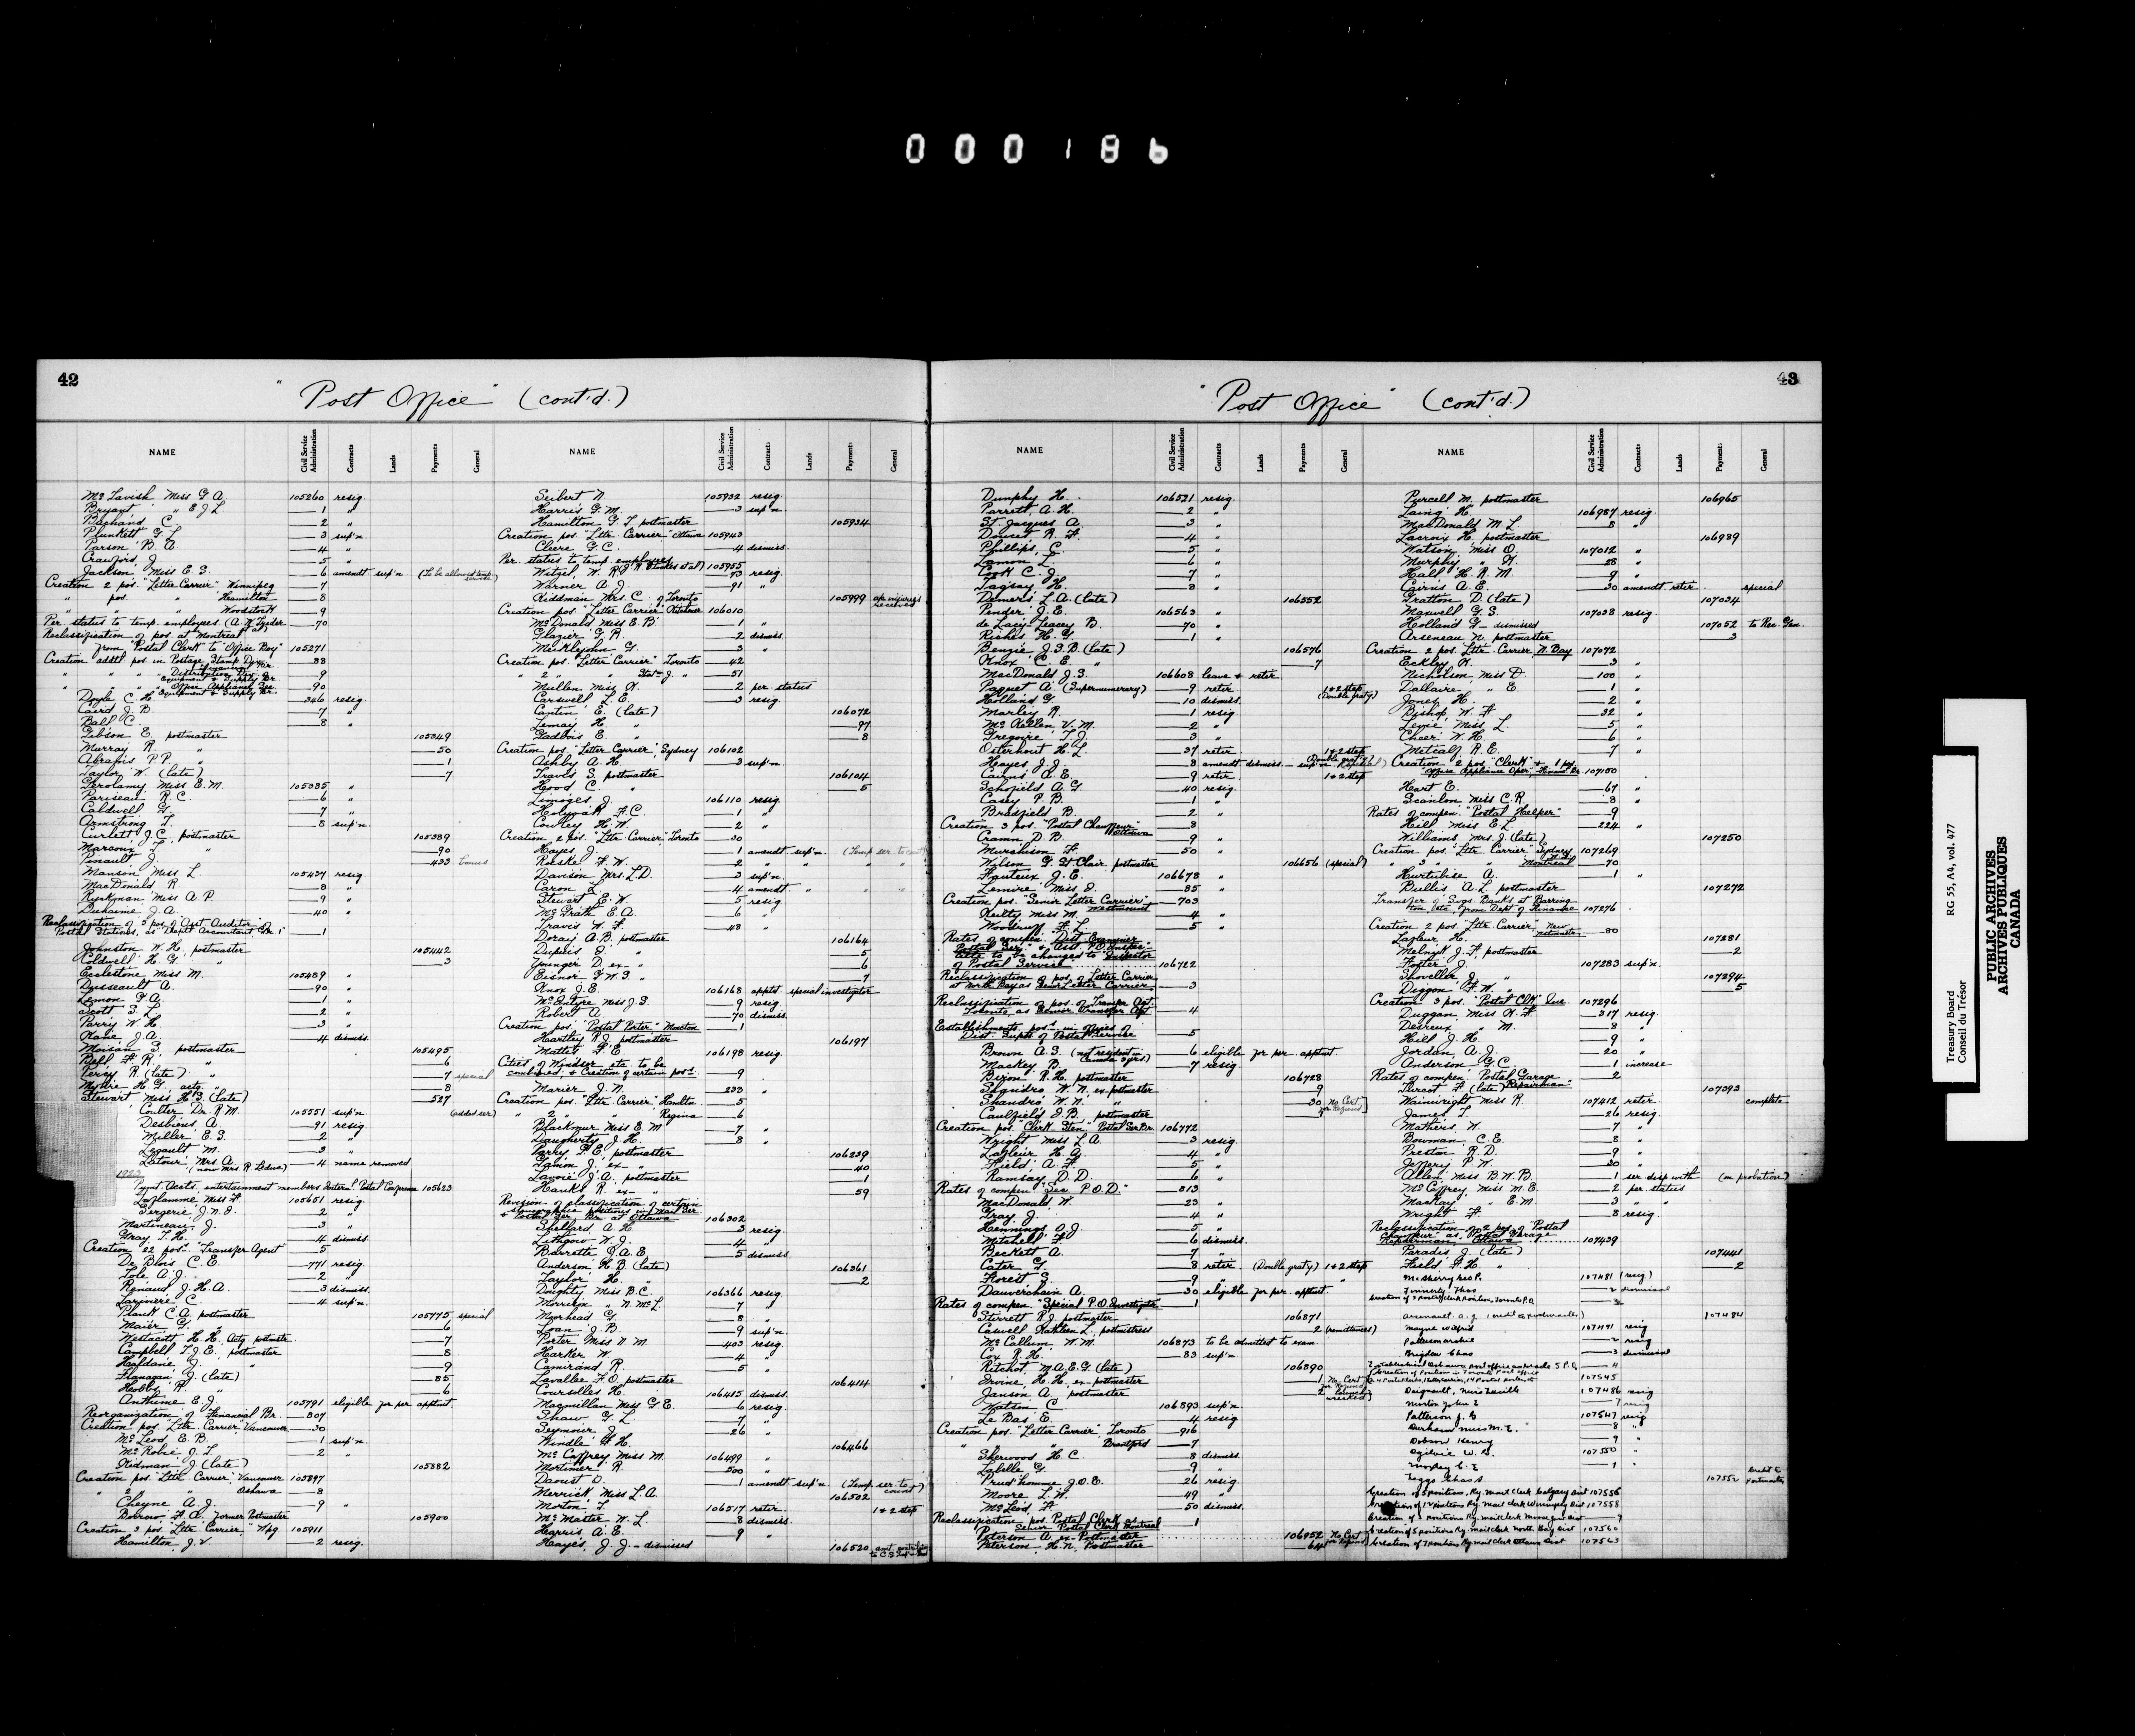 000186
42
"Post Office" (cont'd.)
NAME
Civil Service Administration
Contracts
Lands
Payments
General
NAME
Civil Service Administration
Contracts
Lands
Payments
General
McTavish Miss G. A. 105260 resig.
Bryant " E J L 1 "
Bachand C. 2 "
Plunkett G. L. 3 sup'n.
Parson B. A. 4 "
Crawford J. 5 "
Jackson Miss E. S. 6 amendt sup'n (To be allowed temp. service)
Creation 2 pos. "Letter Carrier" Winnipeg 7
" pos. " Hamilton 8
" " " Woodstock 9
Per. status to temp. employees (A. W. Snider et al) 70
Reclassification of pos. at Montreal
from "Postal Clerk" to "Office Boy" 105271
Creation addtl pos. in Postage Stamp Divn 88
Doyle C. H. 346 resig.
Caird J. B. 7 "
Ball C. 8 "
Gibson E. postmaster 105349
Murray R. " 50
Abrams P. P. " 1
Taylor W. (late) 7
Gerolamy Miss E. M. 105385 "
Pariseau R. C. 6 "
Caldwell G. 7 "
Armstrong T. 8 sup'n.
Curlett J. C. postmaster 105389
Marcoux L. " 90
Pinault J. " 433 bonus
Manson Miss L. 105437 resig.
MacDonald R. 8 "
Ryckman Miss A. P. 9 "
Duhaime J. A. 40 "
Johnston W. H. postmaster 105442
Coldwell H. G. " 3
Ecclestone Miss M. 105489 "
Dusseault A. 90 "
Lemon G. A. 1 "
Scott S. L. 2 "
Parry W. H. 3 "
Kane J. A. 4 dismiss.
Moisan S. postmaster 105495
Bell F. R. " 6
Perry R. (late) " 7 special
Wylie H. G. actg. " 8
Stewart Miss H. S. (late) 527
Coulter Dr. R. M. 105551 sup'n. (added ser.)
Desbiens A. 91 resig.
Miller E. S. 2 "
Legault M. 3 "
Latour Mrs. A. (now Mrs. R. Leduc) 4 name removed
Paymt Accts. entertainment members Internl. Postal Congresse 105623
Laflamme Miss F. 105651 resig.
Gergerie J. N. E. 2 "
Martineau J. 3 "
Gray T. H. 4 dismiss.
Creation 22 pos. "Transfer Agent" 5
De Blois C. E. 771 resig.
Tole A. J. 2 "
Renaud J. H. A. 3 dismiss.
Lariviere C. 4 sup'n.
Plank C. A. postmaster 105775 special
Maier G. " 6
Westacott H. H. Actg. postmstr. 7
Campbell T. J. E. postmaster 8
Haldane J. " 9
Flanagan J. (late) 85
Hobbs R. " 6
Anthime E. J. 105791 eligible for per. apptmt.
Reorganization of Financial Br. 807
Creation pos. "Lttr. Carrier" Vancouver 30
McLeod E. B. 1 sup'n.
McRobie J. T. 2 "
Kidman J. (late) 105882
Creation pos. "Lttr. Carrier" Vancouver 105897
" 2 " " Oshawa 8
Cheyne A. J. 9 "
Debrow F. A. Former Postmaster 105900
Creation 3 pos. "Lttr. Carrier," Wpg. 105911
Hamilton J. V. 2 resig.
Seibert N. 105932 resig.
Harris G. M. 3 sup'n.
Hamilton G. T. postmaster 105934
Creation pos. "Lttr. Carrier" Ottawa 105943
Cleere G. C. 4 dismiss.
Per. status to temp. employees 105955
Wetzel, W. R. 73 resig.
Warner A. J. 91 "
Riddman Mrs. C. of Toronto 105999
Creation pos. "Letter Carrier" Kitchener 106010
McDonald Miss E. B. 1 "
Glazier G. R. 2 dismiss.
Meiklejohn G. 3 "
Creation pos. "Letter Carrier" Toronto 42
" 2 " " Statn J. " 51
Mullen Miss K. 2 per. status
Carswell L. E. 3 resig.
Cantin E. (late) 106072
Lemay H. " 97
Gladbois E. " 8
Creation pos. "Letter Carrier", Sydney 106102
Ashby A. H. 3 sup'n.
Travis S. postmaster 106104
Hood C. " 5
Limoges J. 106110 resig.
Holyoak F. C. 1 "
Cowley H. W. 2 "
Creation 2 pos. "Lttr. Carrier", Toronto 30
Hayes J. 1 amendt sup'n. (Temp ser. to count)
Roeske F. W. 2 " " "
Davison Mrs. L. D. 3 sup'n.
Caron L. 4 amendt " " "
Stewart E. W. 5 resig.
McGrath E. A. 6 "
Travis W. F. 48 "
Doray A. B. postmaster 106164
Dupuis J. " 5
Younger D. ex- " 6
Eisnor G. W. S. " 7
Knox J. E. 106168 apptd special investigator
McIntyre Miss J. S. 9 resig.
Robert A. 70 dismiss.
Creation pos. "Postal Porter" Moncton 1
Hartley R. J. postmaster 106197
Mattet F. E. 106198 resig.
Cities of Windsor etc. to be
combined, & Creation of certain pos. 9
Marier J. N. 233 "
Creation pos. "Lttr. Carrier", Hamltn. 5
" 2 " " Regina 6
Blackmur Miss E. M. 7 "
Daugherty J. H. 8 "
Parry P. E. postmaster 106239
Lamon J. ex- " 40
Lavoie J. A. postmaster 1
Hanks R. ex- " 59
Revision of classification of certain
stenographic positions in Mail Ser.
& Postal Ser. Br. at Ottawa 106302
Shellard A. H. 3 resig.
Lithgow W. J. 4 "
Barrette J. A. E. 5 dismiss.
Anderson H. B. (late) 106361
Taylor H. " 2
Doughty Miss B. C. 106366 resig.
Morrison " N. McL. 7 "
Moorhead G. 8 "
Loan J. B. 9 sup'n.
Porter Miss N. M. 403 resig.
Harker W. 4 "
Camirand R. 5 "
Lavallee F. O. postmaster 106414
Coursolles H. 106415 dismiss.
Macmillan Miss G. E. 6 resig.
Shaw G. L. 7 "
Seymour J. 26 "
Windle F. H. 106466
McCaffrey Miss M. 106499 "
Mortimer R. 500 "
Daoust O. 1 amendt sup'n (Temp ser. to count)
Merrick Miss L. A. 106502
Morton T. 106517 retir. 1 & 2 step
McMaster W. L. 8 dismiss.
Harris A. E. 9 "
Hayes, J. J. - dismissed 106520
43
"Post Office" (cont'd.)
NAME
Civil Service Administration
Contracts
Lands
Payments
General
NAME
Civil Service Administration
Contracts
Lands
Payments
General
Dunphy H. 106521 resig.
Parrett A. H. 2 "
St. Jacques A. 3 "
Doucet R. F. 4 "
Phillips C. 5 "
Lemon L. 6 "
Cook C. J. 7 "
Taisay H. 8 "
Demers L. A. (late) 106552
Pender J. E. 106563 "
de Lacy Lacey B. 70 "
Riches H. G. 1 "
Benzie J. G. B. (late) 106576
Knox C. E. " 7
MacDonald J. S. 106608 leave & retir.
Paquet A. (Supernumerary) 9 retir. 1 & 2 step (Double graty)
Holland G. 10 dismiss.
Marley R. 1 resig.
McKillen V. M. 2 "
Gregoire T. J. 3 "
Osterhout H. L. 37 retir. 1 & 2 step
Hayes J. J. 8 amendt dismiss.
Cairns A. E. 9 retir. 1 & 2 step
Schofield A. G. 40 resig.
Casey P. B. 1 "
Bradfield B. 2 "
Creation 3 pos. "Postal Chauffeur" Ottawa 8
Cramm D. B. 9 "
Murchison F. 50 "
Wilson G. St Clair postmaster 106656 (special)
Fauteux J. E. 106678 "
Lemire Miss E. 85 "
Creation pos. "Senior Letter Carrier" Westmount 703
Reilly Miss M. 4 "
Woodruff F. L. 5 "
Rates of compen. "Dist. Examiner
Postal Ser." & "Asst. P. O. Inspec."
title to be changed to Inspector
of Postal Service 106722
Reclassification of pos. of Letter Carrier
at North Bay as Senior Letter Carrier 3
Reclassification of pos. of Transfer Agt.
Toronto, as Senior Transfer Agt. 4
Establishments pos. in offices of
Dist. Supts of Postal Service 5
Brown A. S. (not resident in Canada 5 yrs.) 6 eligible for per. apptmt.
Mackey B. 7 resig.
Biron R. H. postmaster 106728
Shandro W. N. ex-postmaster 9
Shandro W. N. " 30 No Cert. for Refund
Caulfield J. B. postmaster
Creation pos. "Clerk Sten." Postal Ser. Br. 106772
Wright Miss L. A. 3 resig.
Lafleur H. A. 4 "
Field A. F. 5 "
Ramsay D. D. 6 "
Rates of compen. "Sec. P. O. D." 813
MacDonald W. 23 "
Gray J. 4 "
Hennings O. J. 5 "
Mitchell F. 6 dismiss.
Beckett A. 7 "
Cater G. 8 retir. (Double graty) 1 & 2 step
Forest S. 9 " "
Dauverchain A. 30 eligible for per. apptmt.
Rates of compen. "Special P. O. Investigatr" 1
Stirrett R. J. postmaster 106871
Caswell Kathleen L. postmistress 2 (remittances)
McCallum W. M. 106873 to be admitted to exam.
Cox R. H. 83 sup'n.
Ritchot M. A. E. G. (late) 106890
Irvine H. H. ex-postmaster 1 No Cert.
Janson A. postmaster 2
Watson C. 106893 sup'n.
Le Bas E. 4 resig.
Creation pos. "Letter Carrier", Toronto 916
" " Brantford 7
Sherwood H. C. 8 dismiss.
Labelle G. 9 "
Prud'homme J. O. E. 26 resig.
Moore L. W. 49 "
McLeod F. 50 dismiss.
Reclassification pos. Postal Clerk as
Senior Postal Clerk Montreal 1
Peterson A. ex-Postmaster 106952 No Cert. for Refund
Peterson H. N. Postmaster 64
Purcell M. postmaster 106965
Laing H. 106987 resig.
MacDonald M. L. 8 "
Lacroix H. postmaster 106989
Watson Miss O. 107012 "
Murphy " K. 28 "
Hall H. R. M. 9 "
Cairns A. E. 30 amendt retir. special
Gratton D. (late) 107034
Maxwell G. S. 107038 resig.
Holland G. - dismissed 107052 to Rec. Gen.
Arseneau N. postmaster 3
Creation 2 pos. Lttr. Carrier N. Bay 107072
Eckley K. 3 "
Nicholson Miss D. 100 "
Dallaire " E. 1 "
Jones H. 2 "
Bishop W. F. 32 "
Lewie Miss L. 5 "
Cheer W. H. 6 "
Metcalf R. E. 7 "
Creation 2 pos. "Clerk" & 1 pos.
"Office Appliance Oper." Financl Br. 107150
Hart E. 67 "
Scanlon Miss C. R. 8 "
Rates of compen. "Postal Helper" 9
Hill Miss E. L. 224 "
Williams Mrs. J. (late) 107250
Creation pos. "Lttr. Carrier" Sydney 107269
" 3 " " Montreal 70
Hurtubise A. 1 "
Bullis A. L. postmaster 107272
Transfer of Svgs. Banks at Barrington, etc., from Dept. of Finance 107276
Creation 2 pos. "Lttr. Carrier" New Westminster 80
Lafleur H. 107281
Melnyk J. F. postmaster 2
Foster J. 107283 sup'n.
Shoveller J. " 107294
Diggon F. W. " 5
Creation 3 pos. "Postal Clk" Que. 107296
Duggan Miss K. F. 317 resig.
Devreux " M. 8 "
Hill J. H. 9 "
Jordan A. J. 20 "
Anderson G. C. 1 increase
Rates of compen. "Postal Garage Repairman" 2
Turcot F. (late) 107393
Wainwright Miss R. 107412 retir. complete
James T. 26 resig.
Mathers W. 7 "
Bowman C. E. 8 "
Preston R. D. 9 "
Jeffery P. W. 30 "
Allen Miss B. W. B. 1 ser. disp. with (on probation)
McCaffrey Miss M. E. 2 per. status
MacKay " E. M. 3 "
Wright F. 8 resig.
Reclassification 2 pos. of Postal
Chauffeur as Postal Garage
Repairman, Ottawa 107439
Paradis J. (late) 107441
Field F. H. " 2
McSherry Leo P. 107481 (resig)
Finnerty Thos 2 dismissal
Creation of 2 Postal Clerk Positions Toronto P.O. 3
Arsenault A. J. 107484
Mayne Wilfrid 107491 resig
Patterson Archie 2 resig
Brigden Chas 3 dismissal
107545
Daignault, Miss Lucille 107486 resig
Morton John E. 7 resig
Patterson J. G. 107547 resig
Durham Miss M. E. 8 "
Dobson Henry 9 "
Ogilvie W. G. 107550 "
Morley C. E. 1 "
Leggo Chas A.
Creation of 5 positions, Ry. Mail Clerk Calgary Dist 107556
Creation of 12 positions Ry. Mail Clerk Winnipeg Dist 107558
Creation of 5 positions Ry. mail clerk North Bay Dist 107560
Creation of 7 positions Ry mail clerk Ottawa Dist 107563
Treasury Board
Conseil du Trésor
RG 55, A4, vol. 477
PUBLIC ARCHIVES
ARCHIVES PUBLIQUES
CANADA